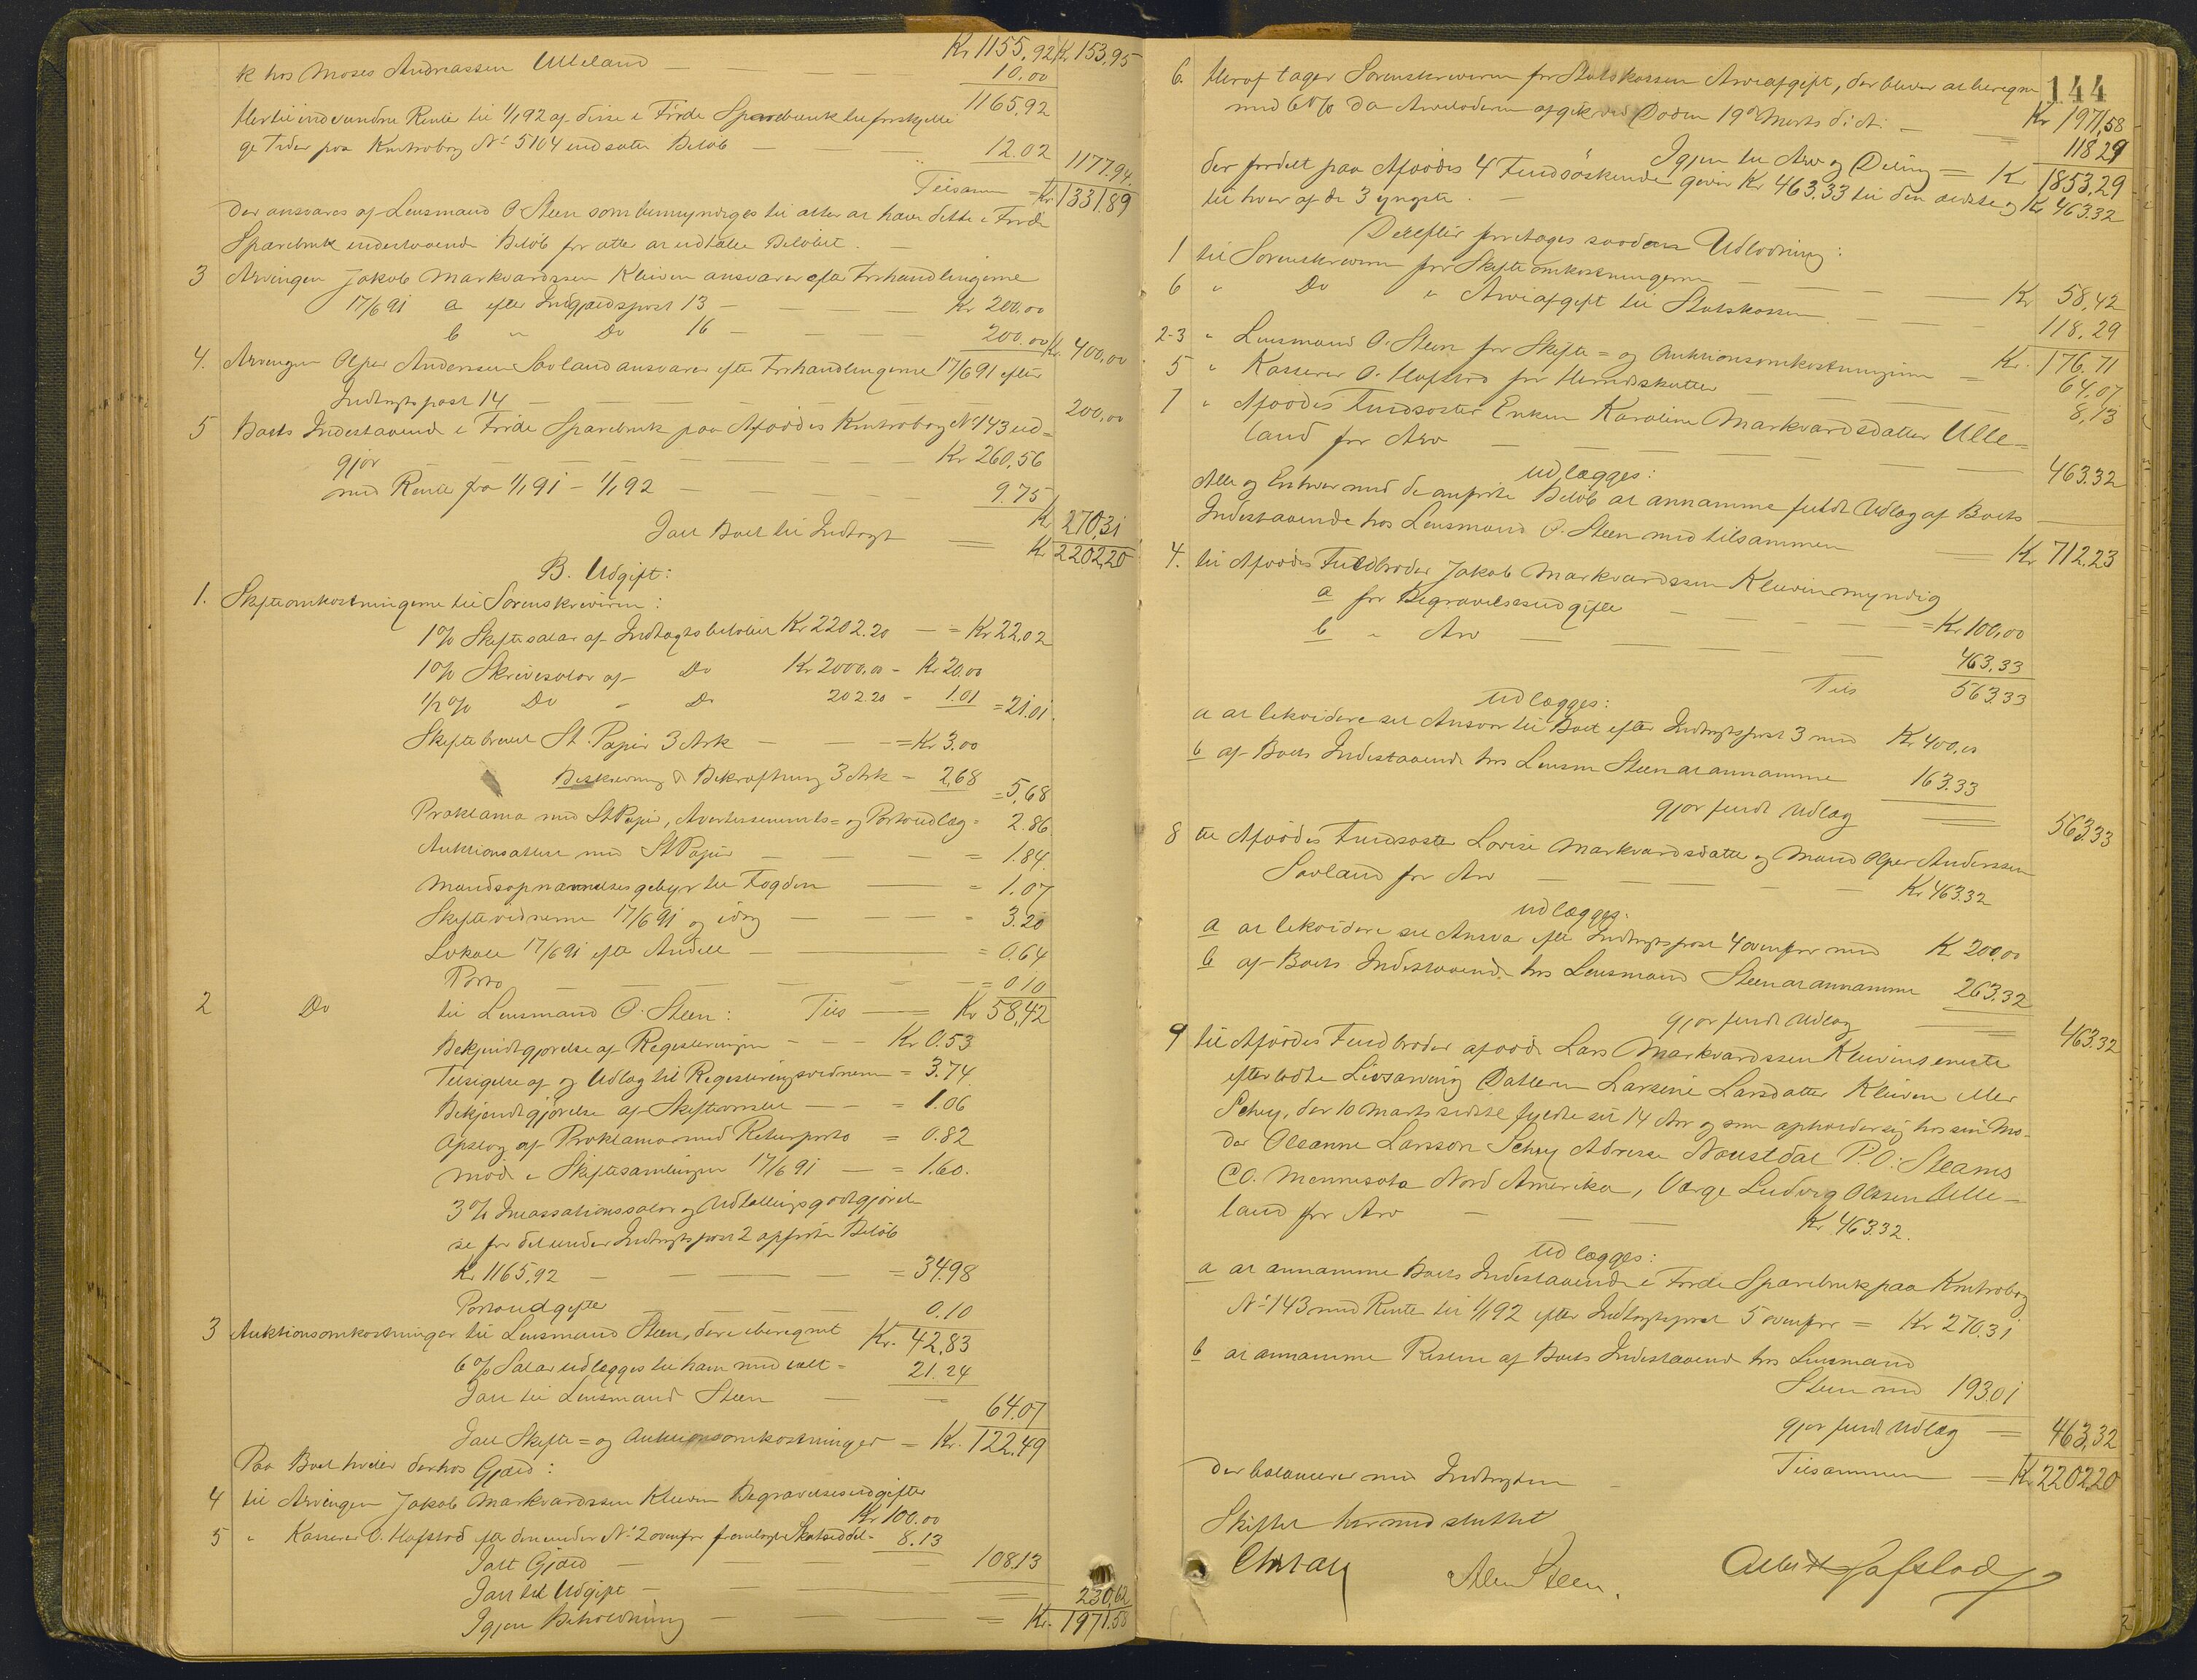 Kr 1155,92 Kr 153,95
k hos Moses Andreassen Ulleland — 10.00
1165,92
Hertil indvundne Rente til 1/1 92 af disse i Førde Sparebank til forskjelli
ge Tider paa Kontrabog No 5104 indsatte Beløb — 12.02 1177.94.
Tilsammen = Kr 1331.89
der ansvares af Lensmand O Steen som bemyndiges til atter at hæve dette i Førde
Sparebank indestaaende Beløb for atter at udtælle Beløbet. —
3 Arvingen Jakob Markvardssen Kleiven ansvarer efter Forhandlingerne
17/6 91 a efter Indgjældspost 13 — Kr 200,00
b " Do 16 — 200.00 Kr. 400,00
4. Arvingen Olper Anderssen Savland ansvarer efter Forhandlingerne 17/6 91 efter
Indtægtspost 14 — 200,00
5 Boets Indestaaende i Førde Sparebank paa Afdødes Kontrabog No 143 ud=
gjør — Kr 260,56
med Rente fra 1/1 91 - 1/1 92 — 9.75
Kr 270,31
Ialt Boet til Indtægt = Kr 2202,20
B. Udgift:
1. Skifteomkostningerne til Sorenskriveren:
1% Skiftesalær af Indtægtsbeløbet Kr 2202.20 — = Kr 22.02
1% Skrivesalær af Do Kr 2000,00 - Kr 20.00
1/2 % Do " Do 202.20 - 1.01 = 21.01.
Skiftebrevet St. Papir 3 Ark — = Kr 3.00
Beskrivning & Bekræftning 3 Ark - 2,68 = 5,68
Proklama med St Papir, Avertissements= og Portoudlæg = 2.86.
Auktionsattest med St Papir — = 1.84.
Mandsopnævnelsesgebyr til Fogden — = 1.07
Skiftevidnerne 17/6 91 og idag — = 3.20
Lokale 17/6 91 efter Andell — = 0.64
Porto — = 0 10
2 Do til Lensmand O. Steen: Tils — Kr 58,42
Bekjendtgjørelse af Registreringen - - - Kr 0.53
Tilsigelse af og Udlæg til Registreringsvidnerne = 3.74
Bekjendtgjørelse af Skiftevarslet — = 1.06
Opslag af Proklama med Returporto = 0.82
Møde i Skiftesamlingen 17/6 91 — = 1.60.
3% Incassationssalær og Udtællingsgodtgjørel
se for det under Indtægtspost 2 opførte Beløb
Kr 1165,92 — = 34.98
Portoudgifter — 0.10
3 Auktionsomkostninger til Lensmand Steen, deri iberegnet Kr. 42,83
6% Salær udlægges til ham med ialt = 21.24
Ialt til Lensmand Steen — 64.07
Ialt Skifte= og Auktionsomkostninger = Kr. 122.49
Paa Boet hviler derhos Gjæld:
4 til Arvingen Jakob Markvardssen Kleiven Begravelsesudgifter
Kr 100.00
5 " Kasserer O. Hafstad efter den under No 2 ovenfor fremlagte Skatseddel - 8.13
Ialt Gjæld — 108.13
Ialt til Udgift — 230,62
Igjen Beholdning — = Kr. 1971.58
144
6. Heraf tager Sorenskriveren for Statskassen Arveafgift, der bliver at beregne
med 6% da Arveladeren afgik ved Døden 19de Marts d: A: — Kr 1971,58
118 29
Igjen til Arv og Deling = Kr 1853,29
der fordelt paa Afdødes 4 Fuldsøskende giver Kr 463.33 til den ældste og Kr 463.32
til hver af de 3 yngste. —
Derefter foretages saadan Udlodning:
1 til Sorenskriveren for Skifteomkostningerne — Kr 58,42
6 " Do " Arveafgift til Statskassen — 118.29
Kr. 176.71
2-3 " Lensmand O. Steen for Skifte= og Auktionsomkostningerne = 64,07
5 " Kasserer O. Hafstad for Herredsskatter — 8,13
7 " Afdødes Fuldsøster Enken Karoline Markvardsdatter Ulle=
land for Arv — 463.32
Udlægges:
Alle og Enhver med de anførte Beløb at annamme fuldt Udlæg af Boets
Indestaaende hos Lensmand O. Steen med tilsammen — Kr 712.23
4. til Afdødes Fuldbroder Jakob Markvardssen Kleiven myndig
a for Begravelsesudgifter — = Kr 100,00
b " Arv — 463.33
Tils 563.33
Udlægges:
a at likvidere sit Ansvar til Boet efter Indtægtspost 3 med Kr 400,00
b af Boets Indestaaende hos Lensm Steen at annamme 163.33
gjør fuldt Udlæg 563.33
8 til Afdødes Fuldsøster Lovise Markvardsdatter og Mand Olper Anderssen
Savland for Arv — Kr. 463.32
Udlægges:
a at likvidere sit Ansvar efter Indtægtspost 4 ovenfor med Kr 200,00
b af Boets Indestaaende hos Lensmand Steen at annamme 263.32
gjør fuldt Udlæg 463.32
9 til Afdødes Fuldbroder afdøde Lars Markvardssen Kleivens eneste
efterladte Livsarving Datteren Larsine Larsdatter Kleiven eller
Schey, der 10 Marts sidste fyldte sit 14 Aar og som opholder sig hos sin Mo-
der Oleanne Larsson Schey Adresse Naustdal P.O: Stearns
CO. Mennesota Nord Amerika, Værge Ludvig Olssen Ulle-
land for Arv — Kr. 463.32.
Udlægges:
a at annamme Boets Indestaaende i Førde Sparebank paa Kontrabog
No 143 med Rente til 1/1 92 efter Indtægtspost 5 ovenfor = Kr 270.31
b at annamme Resten af Boets Indestaaende hos Lensmand
Steen med 193.01
gjør fuldt Udlæg = 463,32
der balancerer med Indtægten — Tilsammen = Kr 2202,20
Skiftet hermed sluttet
O Steen.
Hafstad